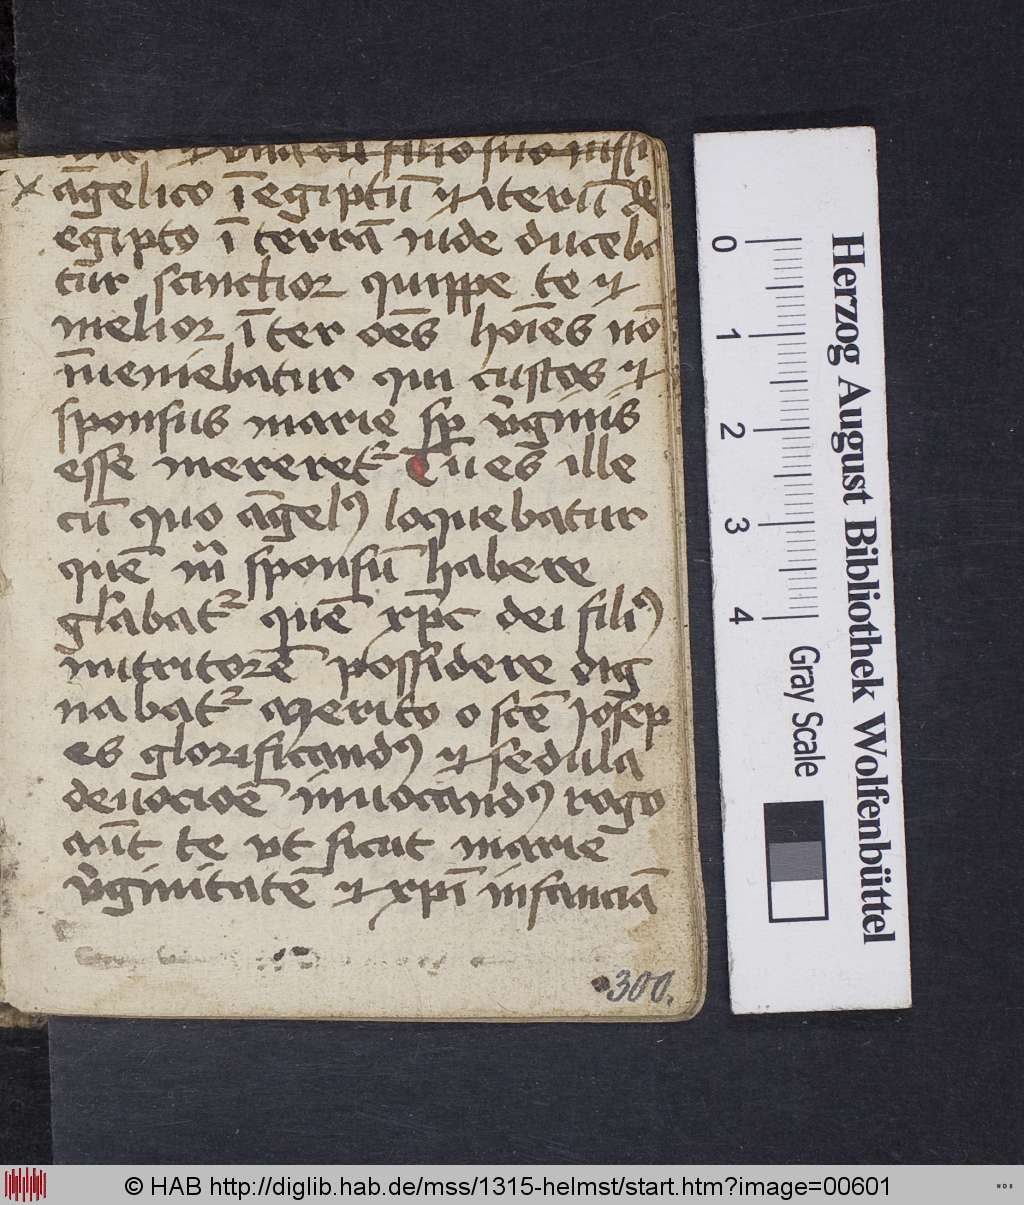 et una cū filio suo iussi
āgelico ī egiptū et iterū de
egipto ī terrā iude duceba
tur sanctior quippe te et
melior īter oēs hoīes nō
īueniebatur qui custos et
sponsus marie sp v̓ginis
esse mereret᷑ Tu es ille
cū quo āgelꝰ loquebatur
quē mr̄ sponsū habere
gl̓abat᷑ quē xp̄c dei filiꝰ
nutritorē possidere dig
nabat᷑ merito o scē Joseph
es glorificandꝰ et sedula
deuocioē inuocandꝰ rogo
aūt te vt sicut marie
v̓ginitatē et xp̄i infanciā
300.
0
1
2
3
4
Gray Scale
Herzog August Bibliothek Wolfenbüttel
© HAB http://diglib.hab.de/mss/1315-helmst/start.htm?image=00601